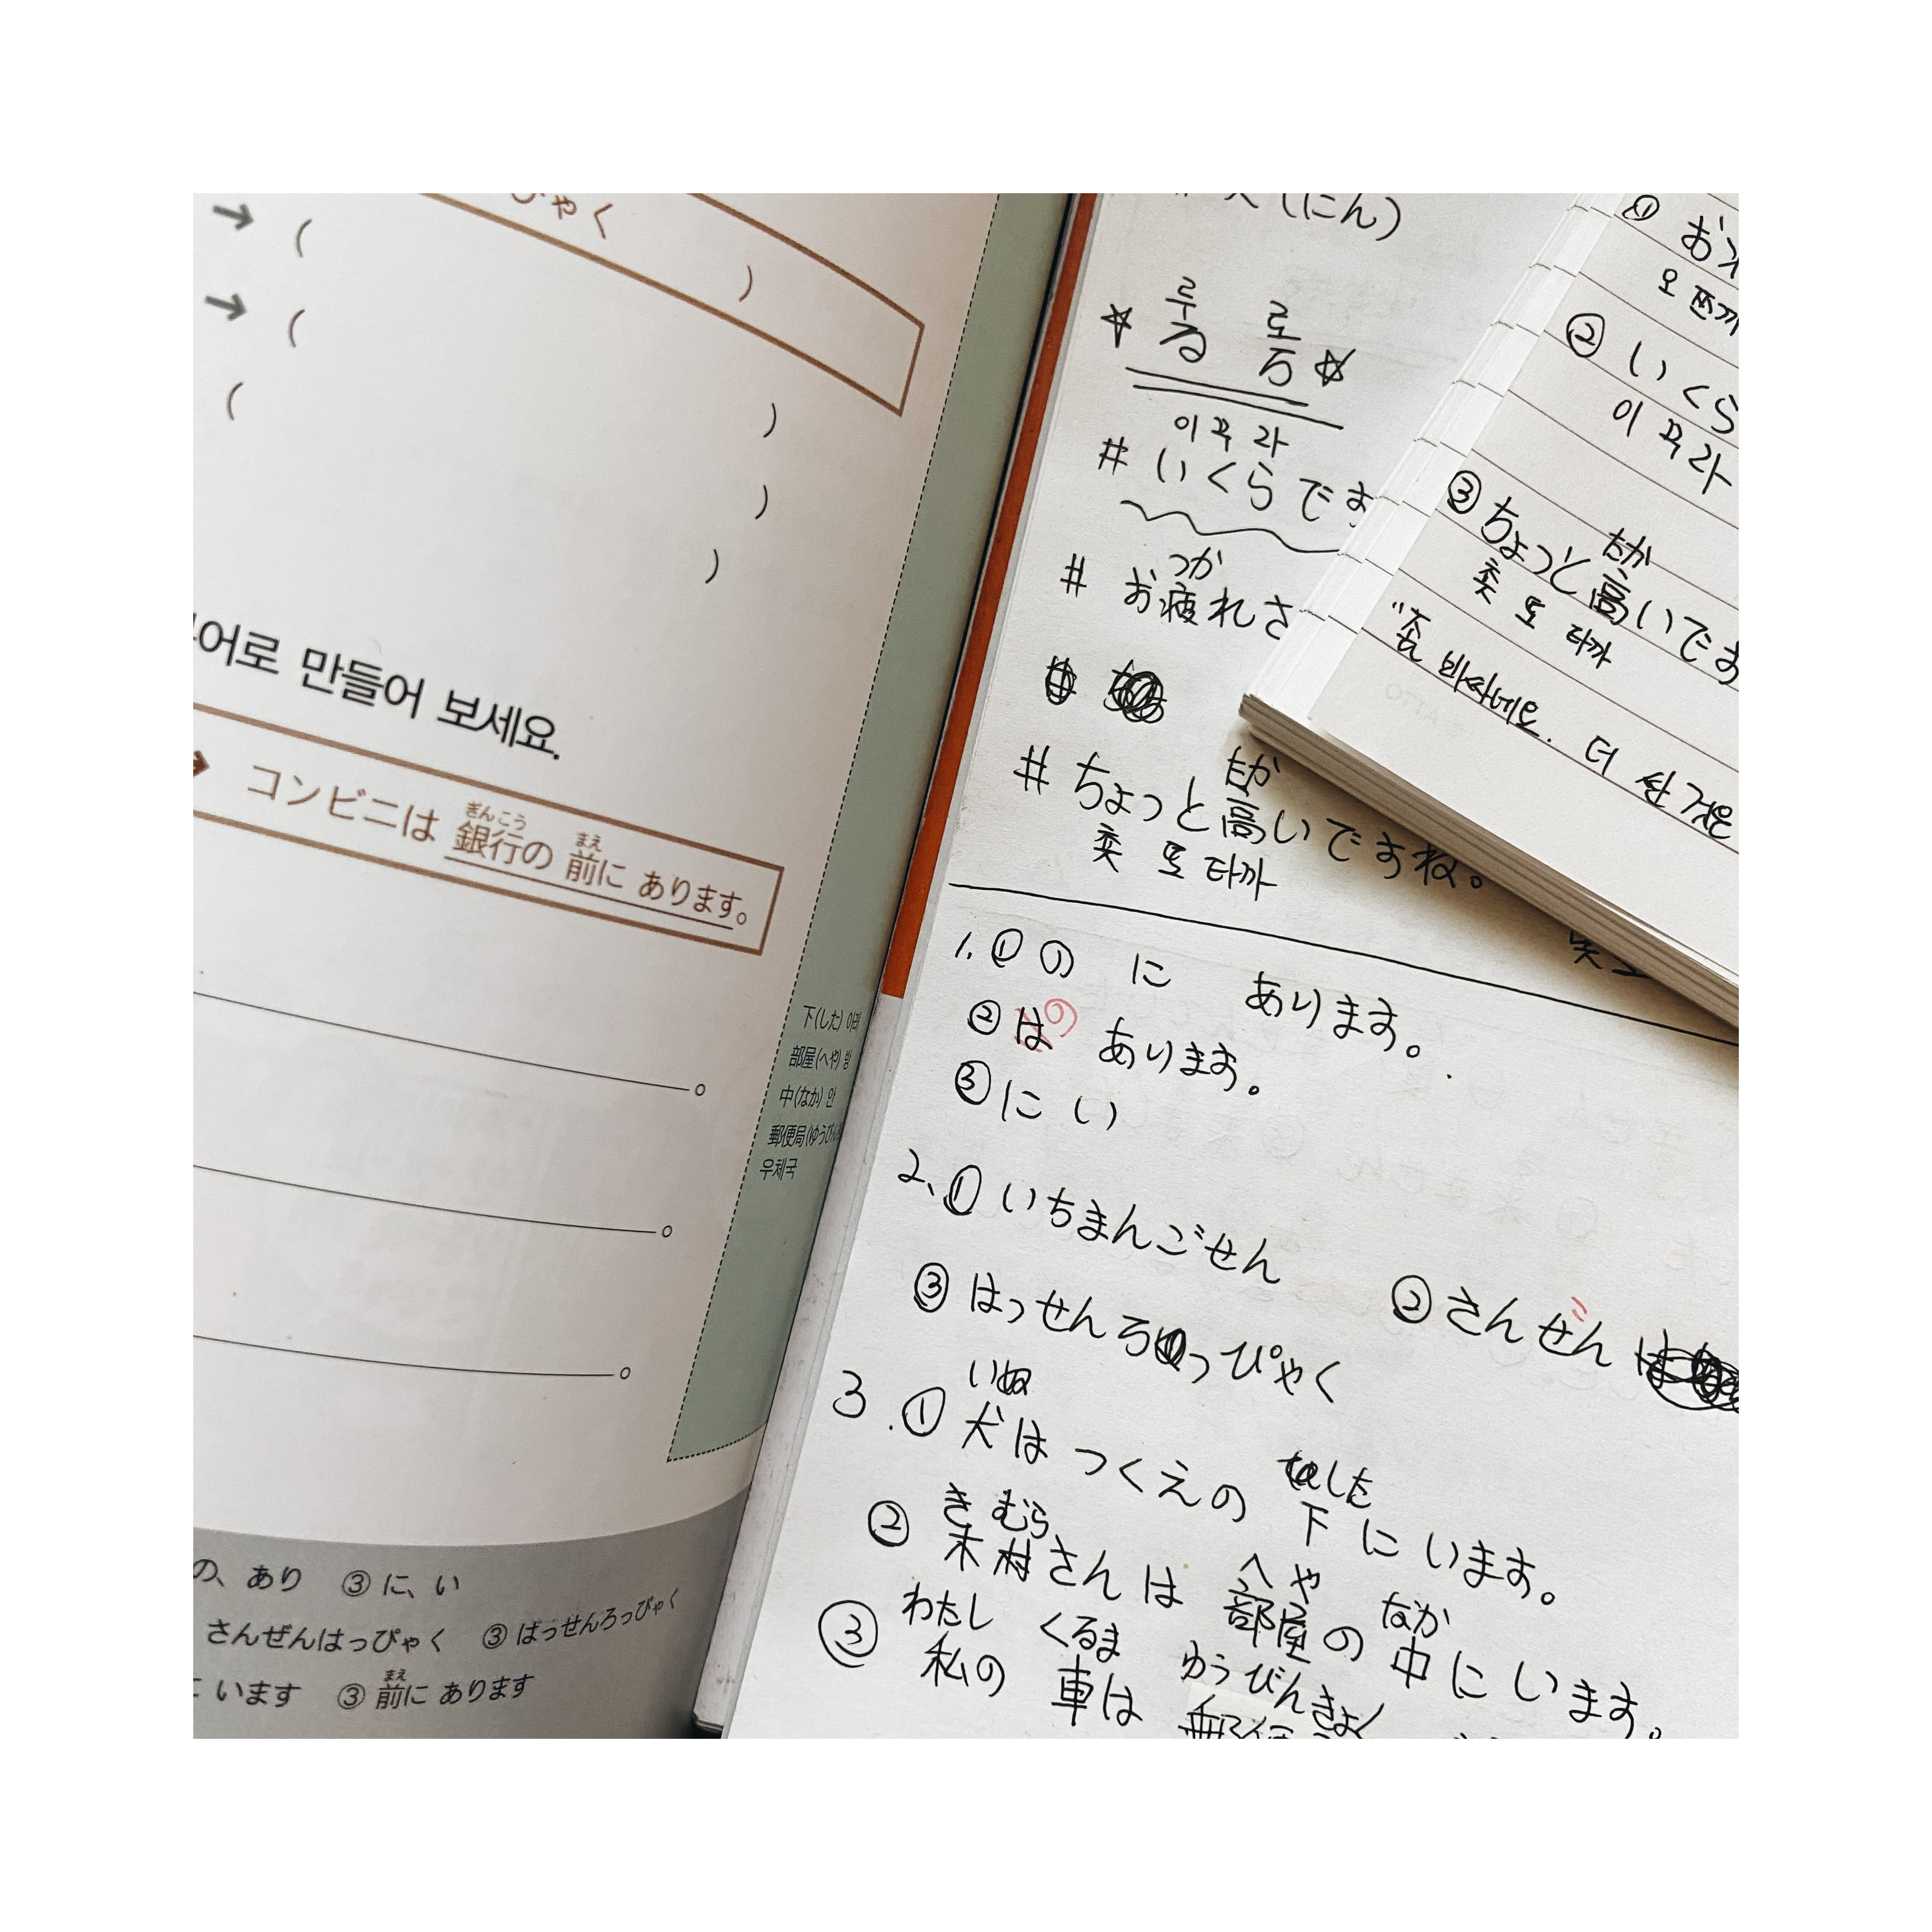 ぴゃく
→ (
)
→ (
(
)
)
)
어로 만들어 보세요.
ぎんこう まえ
コンビニは 銀行の 前に あります。
下(した) 아래
部屋(へや) 방
中(なか) 안
郵便局(ゆうびん
우체국
の、あり ③ に、い
さんぜんはっぴゃく ③ はっせんろっぴゃく
まえ
います ③ 前に あります
(にん)
루 로
☆ る ろ ☆
이꾸라
# いくらです
つか
# お疲れさ
たか
# ちょっと高いですね。
춋 또 타까
1. ① の に あります。
② は の あります。
③ に い
2. ① いちまんごせん
② さんぜん
③ はっせんろっぴゃく
いぬ した
3. ① 犬は つくえの 下に います。
きむら へや なか
② 木村さんは 部屋の中に います。
わたし くるま ゆうびんきょく
③ 私の 車は
①
② いくら
이꾸라
たか
③ ちょっと高いです
춋 또 타까
"좀 비싸네요. 더 싼 거은